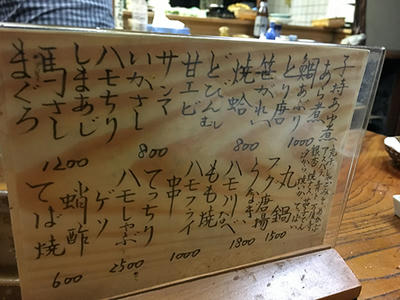 子持あゆ煮
あら煮
鯛あぶり
とり唐
1000
笹がれい
焼蛤
800
どびんむし
甘エビ
サンマ
800
いかさし
ハモちり
しまあじ
馬さし
1200
まぐろ
丸鍋
1500
フグ唐揚
うなぎ
1800
ハモ川なべ
もも焼
ハモフライ
1000
串
てっちり
ハモしゃぶ
2500
ゲソ
蛸酢
てば焼
600